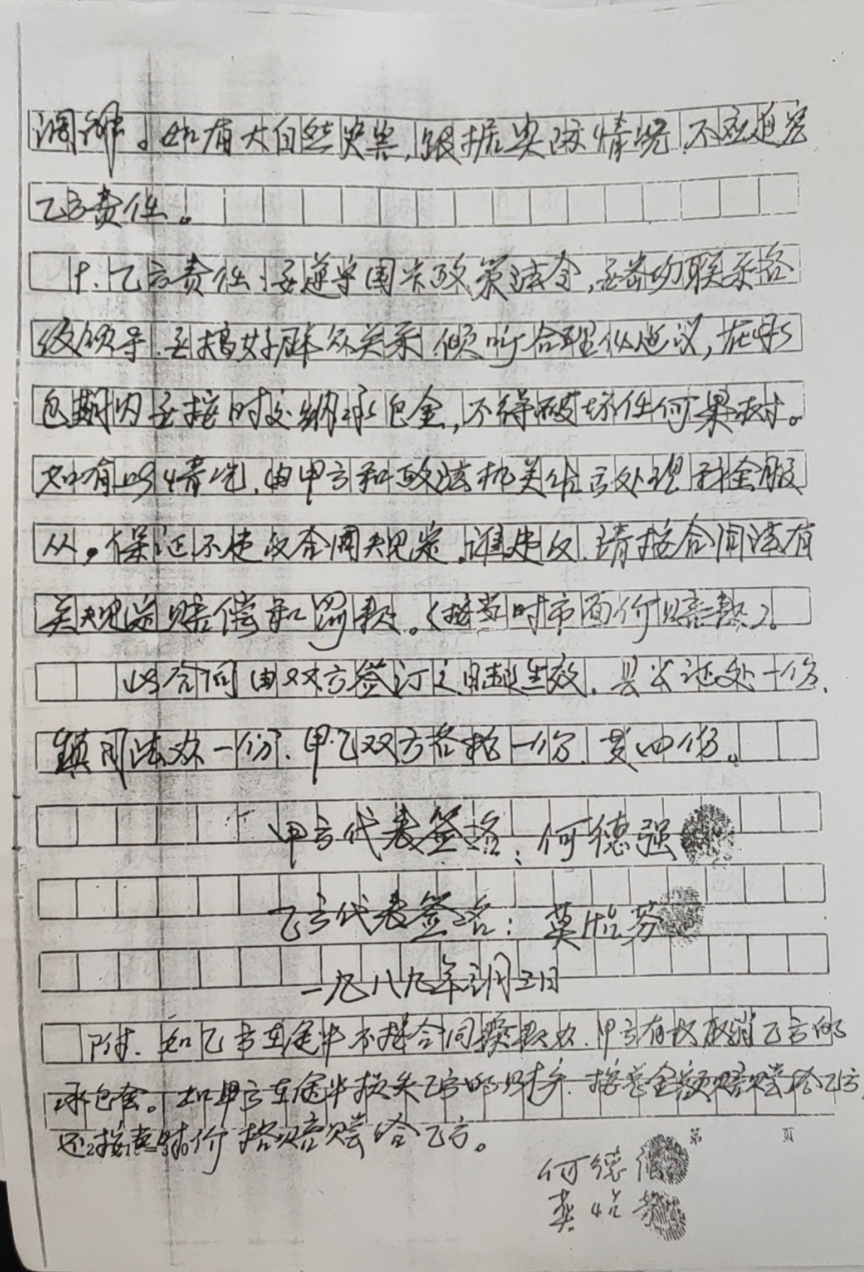 调解。如有大自然灾害,跟据实际情况,不应追究
乙方责任。
乙方责任:要遵守国家政策法令,要密切联系各
级领导,要搞好群众关系,倾听合理化建议,在承
包期内要按时交纳承包金,不得破坏任何果树。
如有此情况,由甲方和政法机关给予处理,并全服
从。保证不违反合同规定,谁违反,请按合同法有
关规定赔偿和罚款。(按当时市面价赔款)。
此合同由双方签订之日起生效,县公证处一份,
镇司法办一份,甲乙双方各执一份,共四份。
甲方代表签名:何德强
乙方代表签名:莫怡芬
一九八九年 月 日
附.如乙方在途中不按合同 ,甲方有权取消乙方的
承包金。如甲方在途中损失乙方的财产,按总金额赔偿给乙方,
还按当时价 赔偿给乙方。
第 页
何德强
莫怡芬